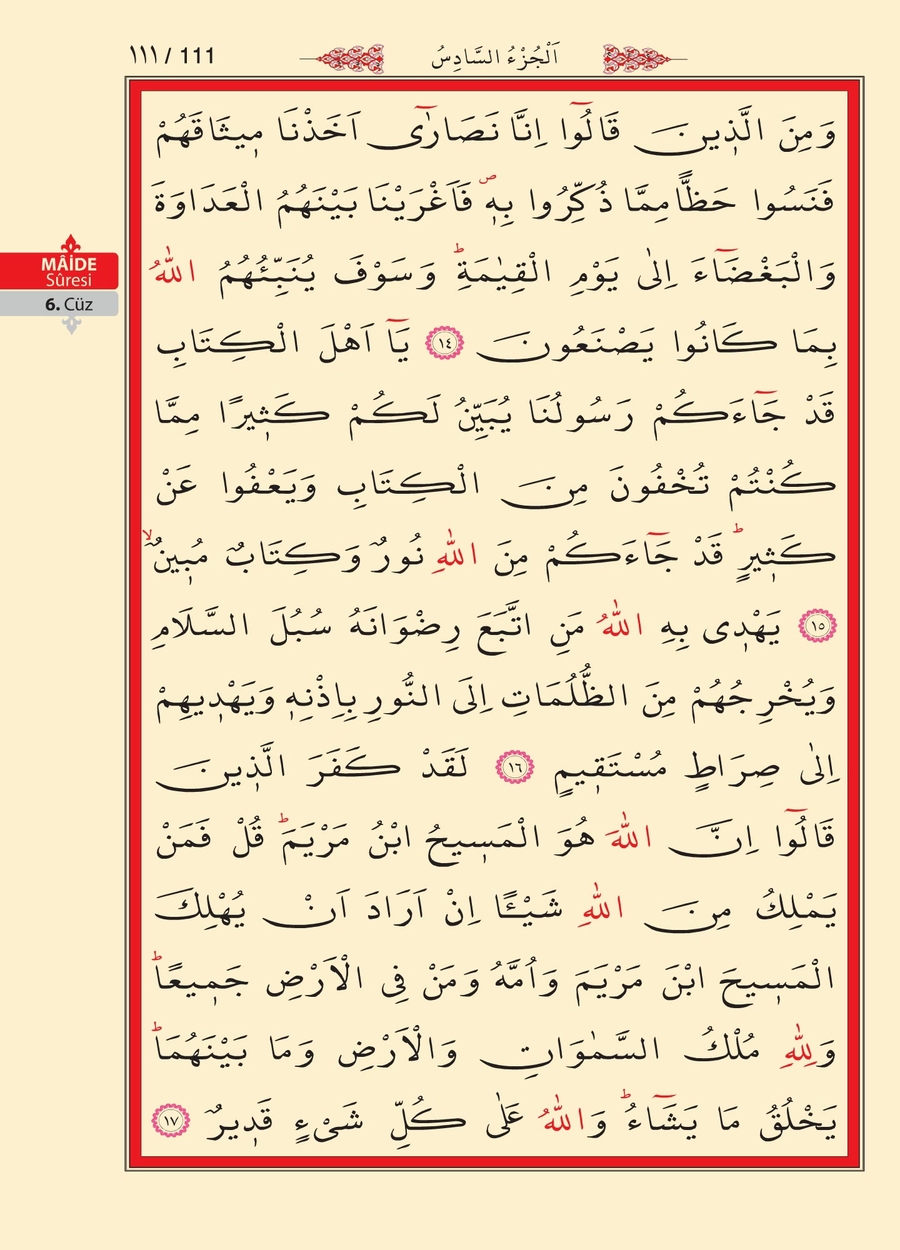 ١١١ / 111
اَلْجُزْءُ السَّادِسُ
وَمِنَ الَّذ۪ينَ قَالُٓوا اِنَّا نَصَارٰٓى اَخَذْنَا م۪يثَاقَهُمْ
فَنَسُوا حَظًّا مِمَّا ذُكِّرُوا بِه۪ۖ فَاَغْرَيْنَا بَيْنَهُمُ الْعَدَاوَةَ
وَالْبَغْضَٓاءَ اِلٰى يَوْمِ الْقِيٰمَةِۜ وَسَوْفَ يُنَبِّئُهُمُ اللّٰهُ
بِمَا كَانُوا يَصْنَعُونَ ﴿١٤﴾ يَٓا اَهْلَ الْكِتَابِ
قَدْ جَٓاءَكُمْ رَسُولُنَا يُبَيِّنُ لَكُمْ كَث۪يرًا مِمَّا
كُنْتُمْ تُخْفُونَ مِنَ الْكِتَابِ وَيَعْفُوا عَنْ
كَث۪يرٍۜ قَدْ جَٓاءَكُمْ مِنَ اللّٰهِ نُورٌ وَكِتَابٌ مُب۪ينٌۙ
﴿١٥﴾ يَهْد۪ى بِهِ اللّٰهُ مَنِ اتَّبَعَ رِضْوَانَهُ سُبُلَ السَّلَامِ
وَيُخْرِجُهُمْ مِنَ الظُّلُمَاتِ اِلَى النُّورِ بِاِذْنِه۪ وَيَهْد۪يهِمْ
اِلٰى صِرَاطٍ مُسْتَق۪يمٍ ﴿١٦﴾ لَقَدْ كَفَرَ الَّذ۪ينَ
قَالُٓوا اِنَّ اللّٰهَ هُوَ الْمَس۪يحُ ابْنُ مَرْيَمَۜ قُلْ فَمَنْ
يَمْلِكُ مِنَ اللّٰهِ شَيْـًٔا اِنْ اَرَادَ اَنْ يُهْلِكَ
الْمَس۪يحَ ابْنَ مَرْيَمَ وَاُمَّهُ وَمَنْ فِى الْاَرْضِ جَم۪يعًاۜ
وَلِلّٰهِ مُلْكُ السَّمٰوَاتِ وَالْاَرْضِ وَمَا بَيْنَهُمَاۜ
يَخْلُقُ مَا يَشَٓاءُۜ وَاللّٰهُ عَلٰى كُلِّ شَىْءٍ قَد۪يرٌ ﴿١٧﴾
MÂİDE
Sûresi
6. Cüz